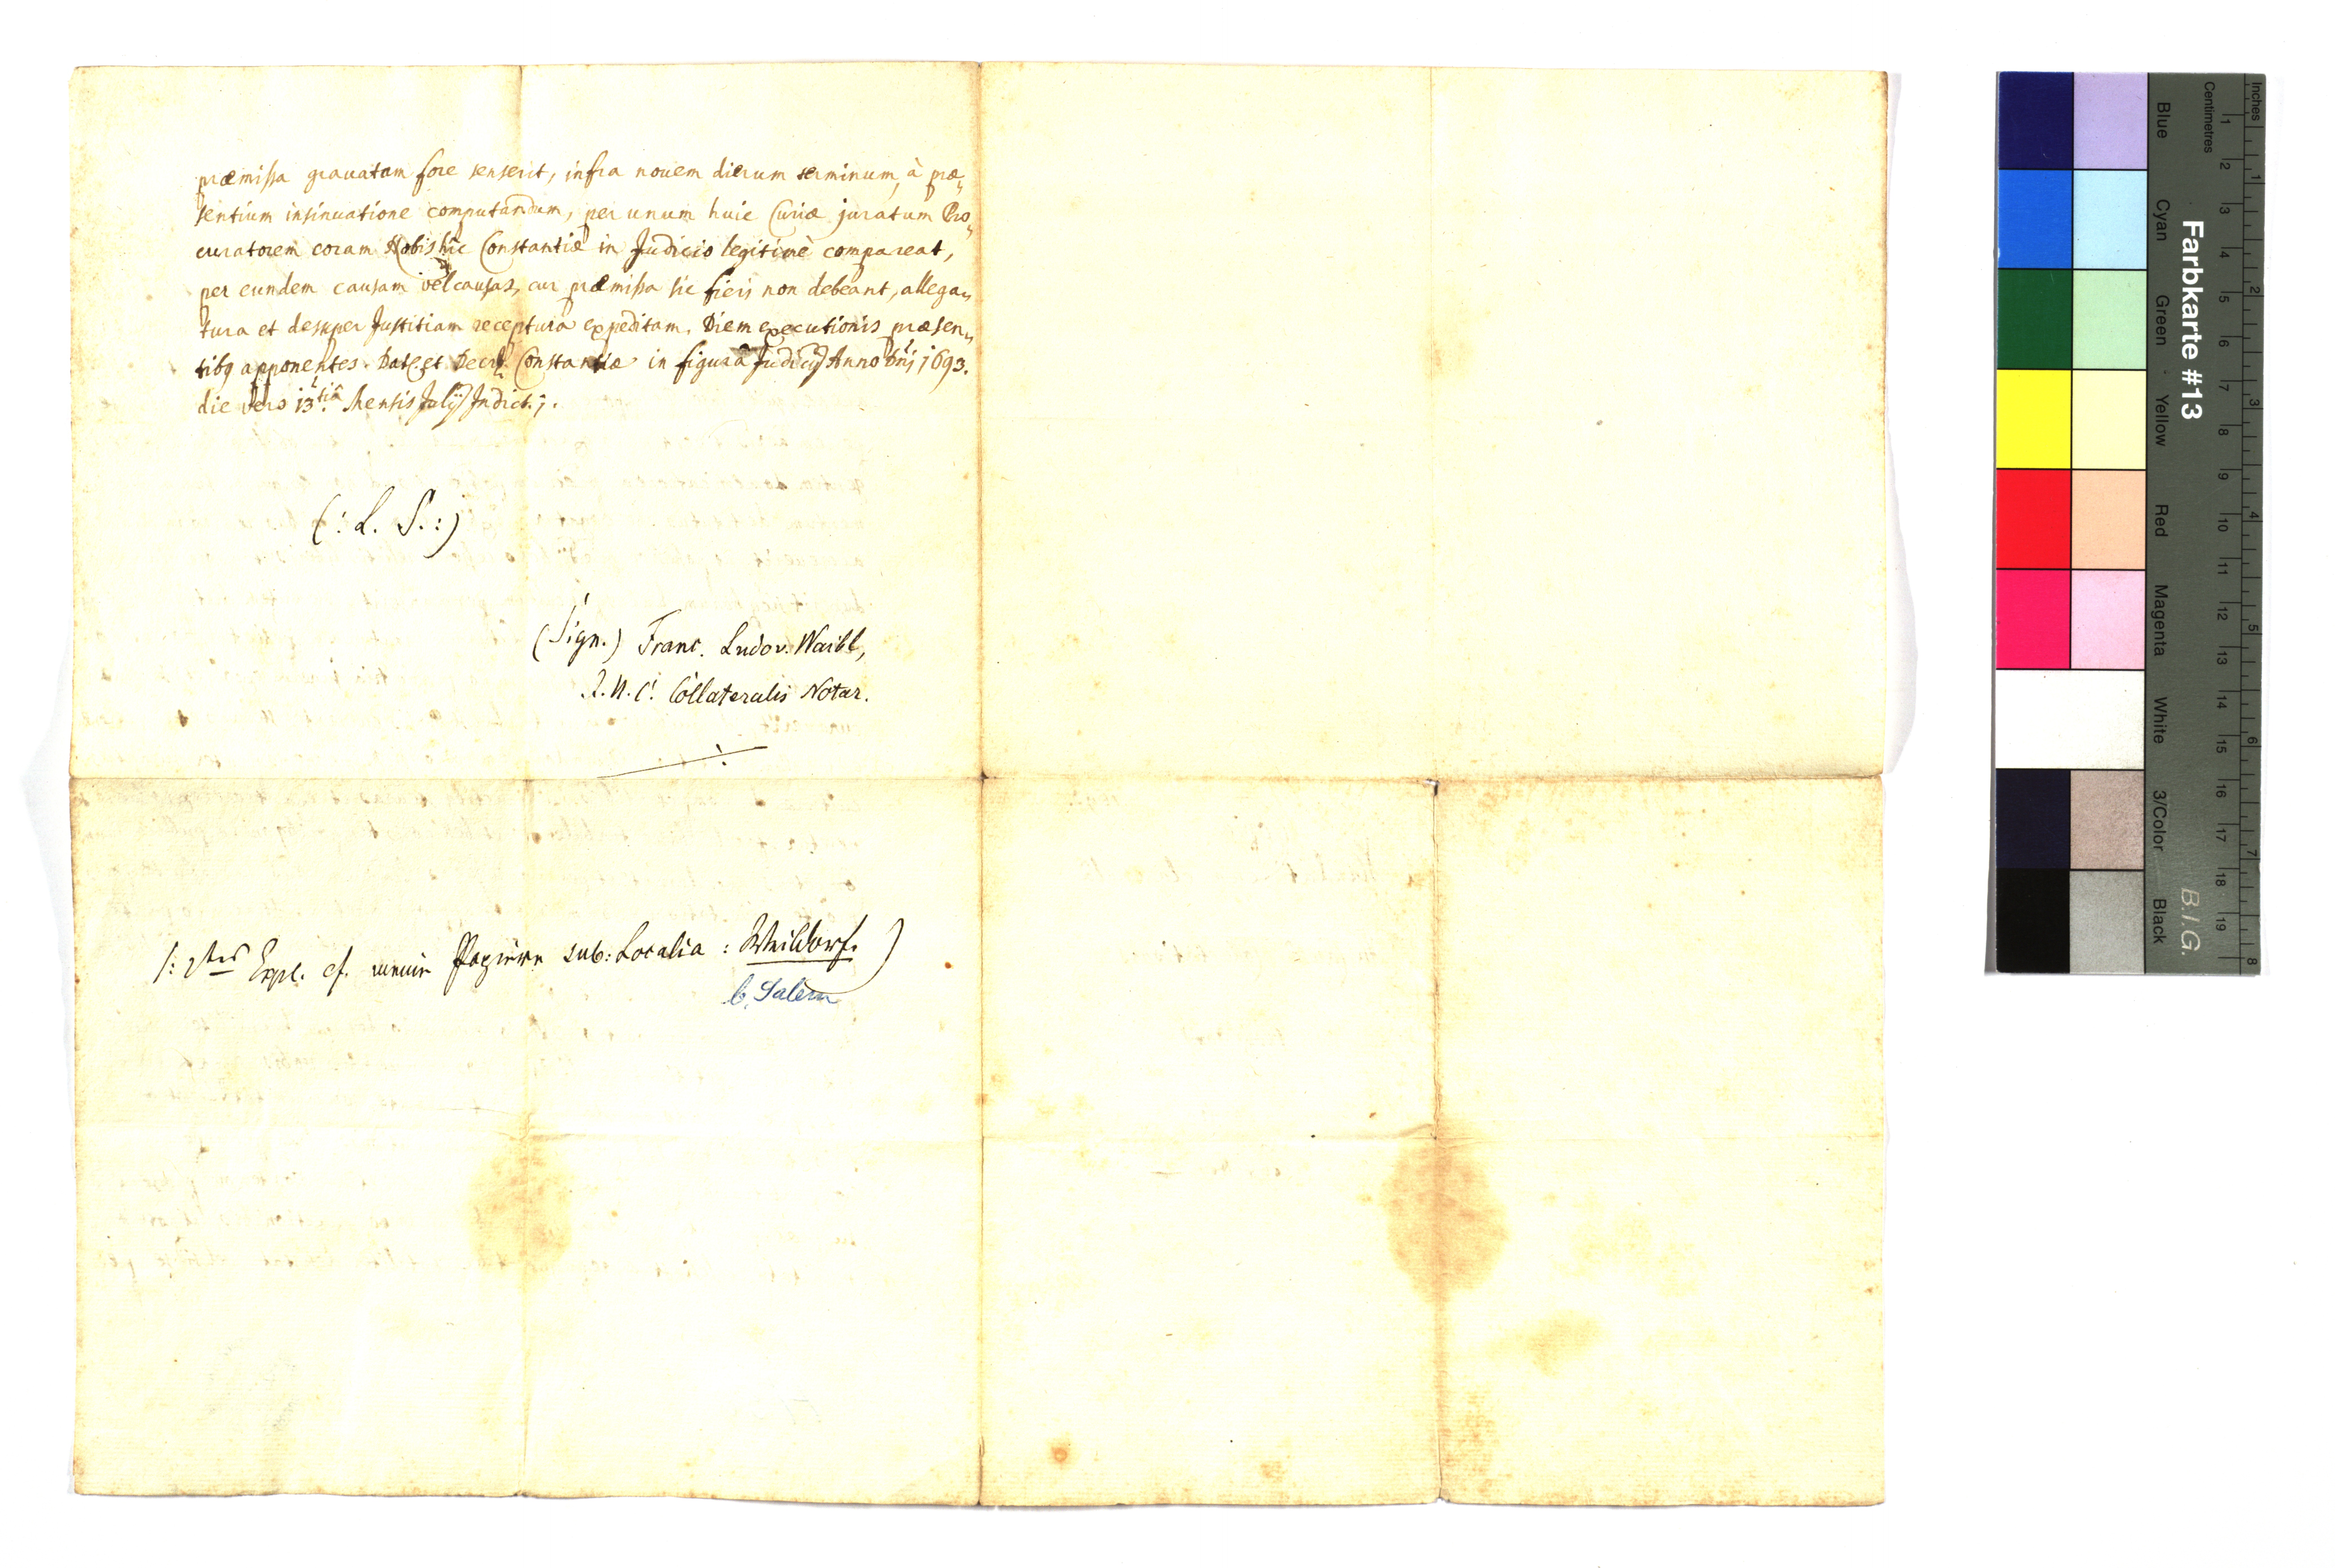 præmissa gravatam fore senserit, infra novem dierum terminum, à præ„
sentium insinuatione computandum, per unum huic Curiæ juratum Pro„
curatorem coram Nobis hîc Constantiæ in Judicio legitimè compareat,
per eundem causam vel causas, cur præmissa sic fieri non debeant, allega„
tura et desuper Justitiam receptura expeditam. Diem executionis præsen„
tibq apponentes. Dat. et Decr. Constantiæ in figura Judicij Anno Dni 1693.
die vero 13.tiâ Mensis Julij Indict. j.
(: L. S. :)
(Sign.) Franc. Ludov. Waibl,
Collateralis Notar.
Expl. cf. meine Papiere sub: Localia : Weildorf. )
b. Salem
Farbkarte #13
B.I.G.
Blue
Cyan
Green
Yellow
Red
Magenta
White
3/Color
Black
Centimetres
1 2 3 4 5 6 7 8 9 10 11 12 13 14 15 16 17 18 19
Inches
1 2 3 4 5 6 7 8